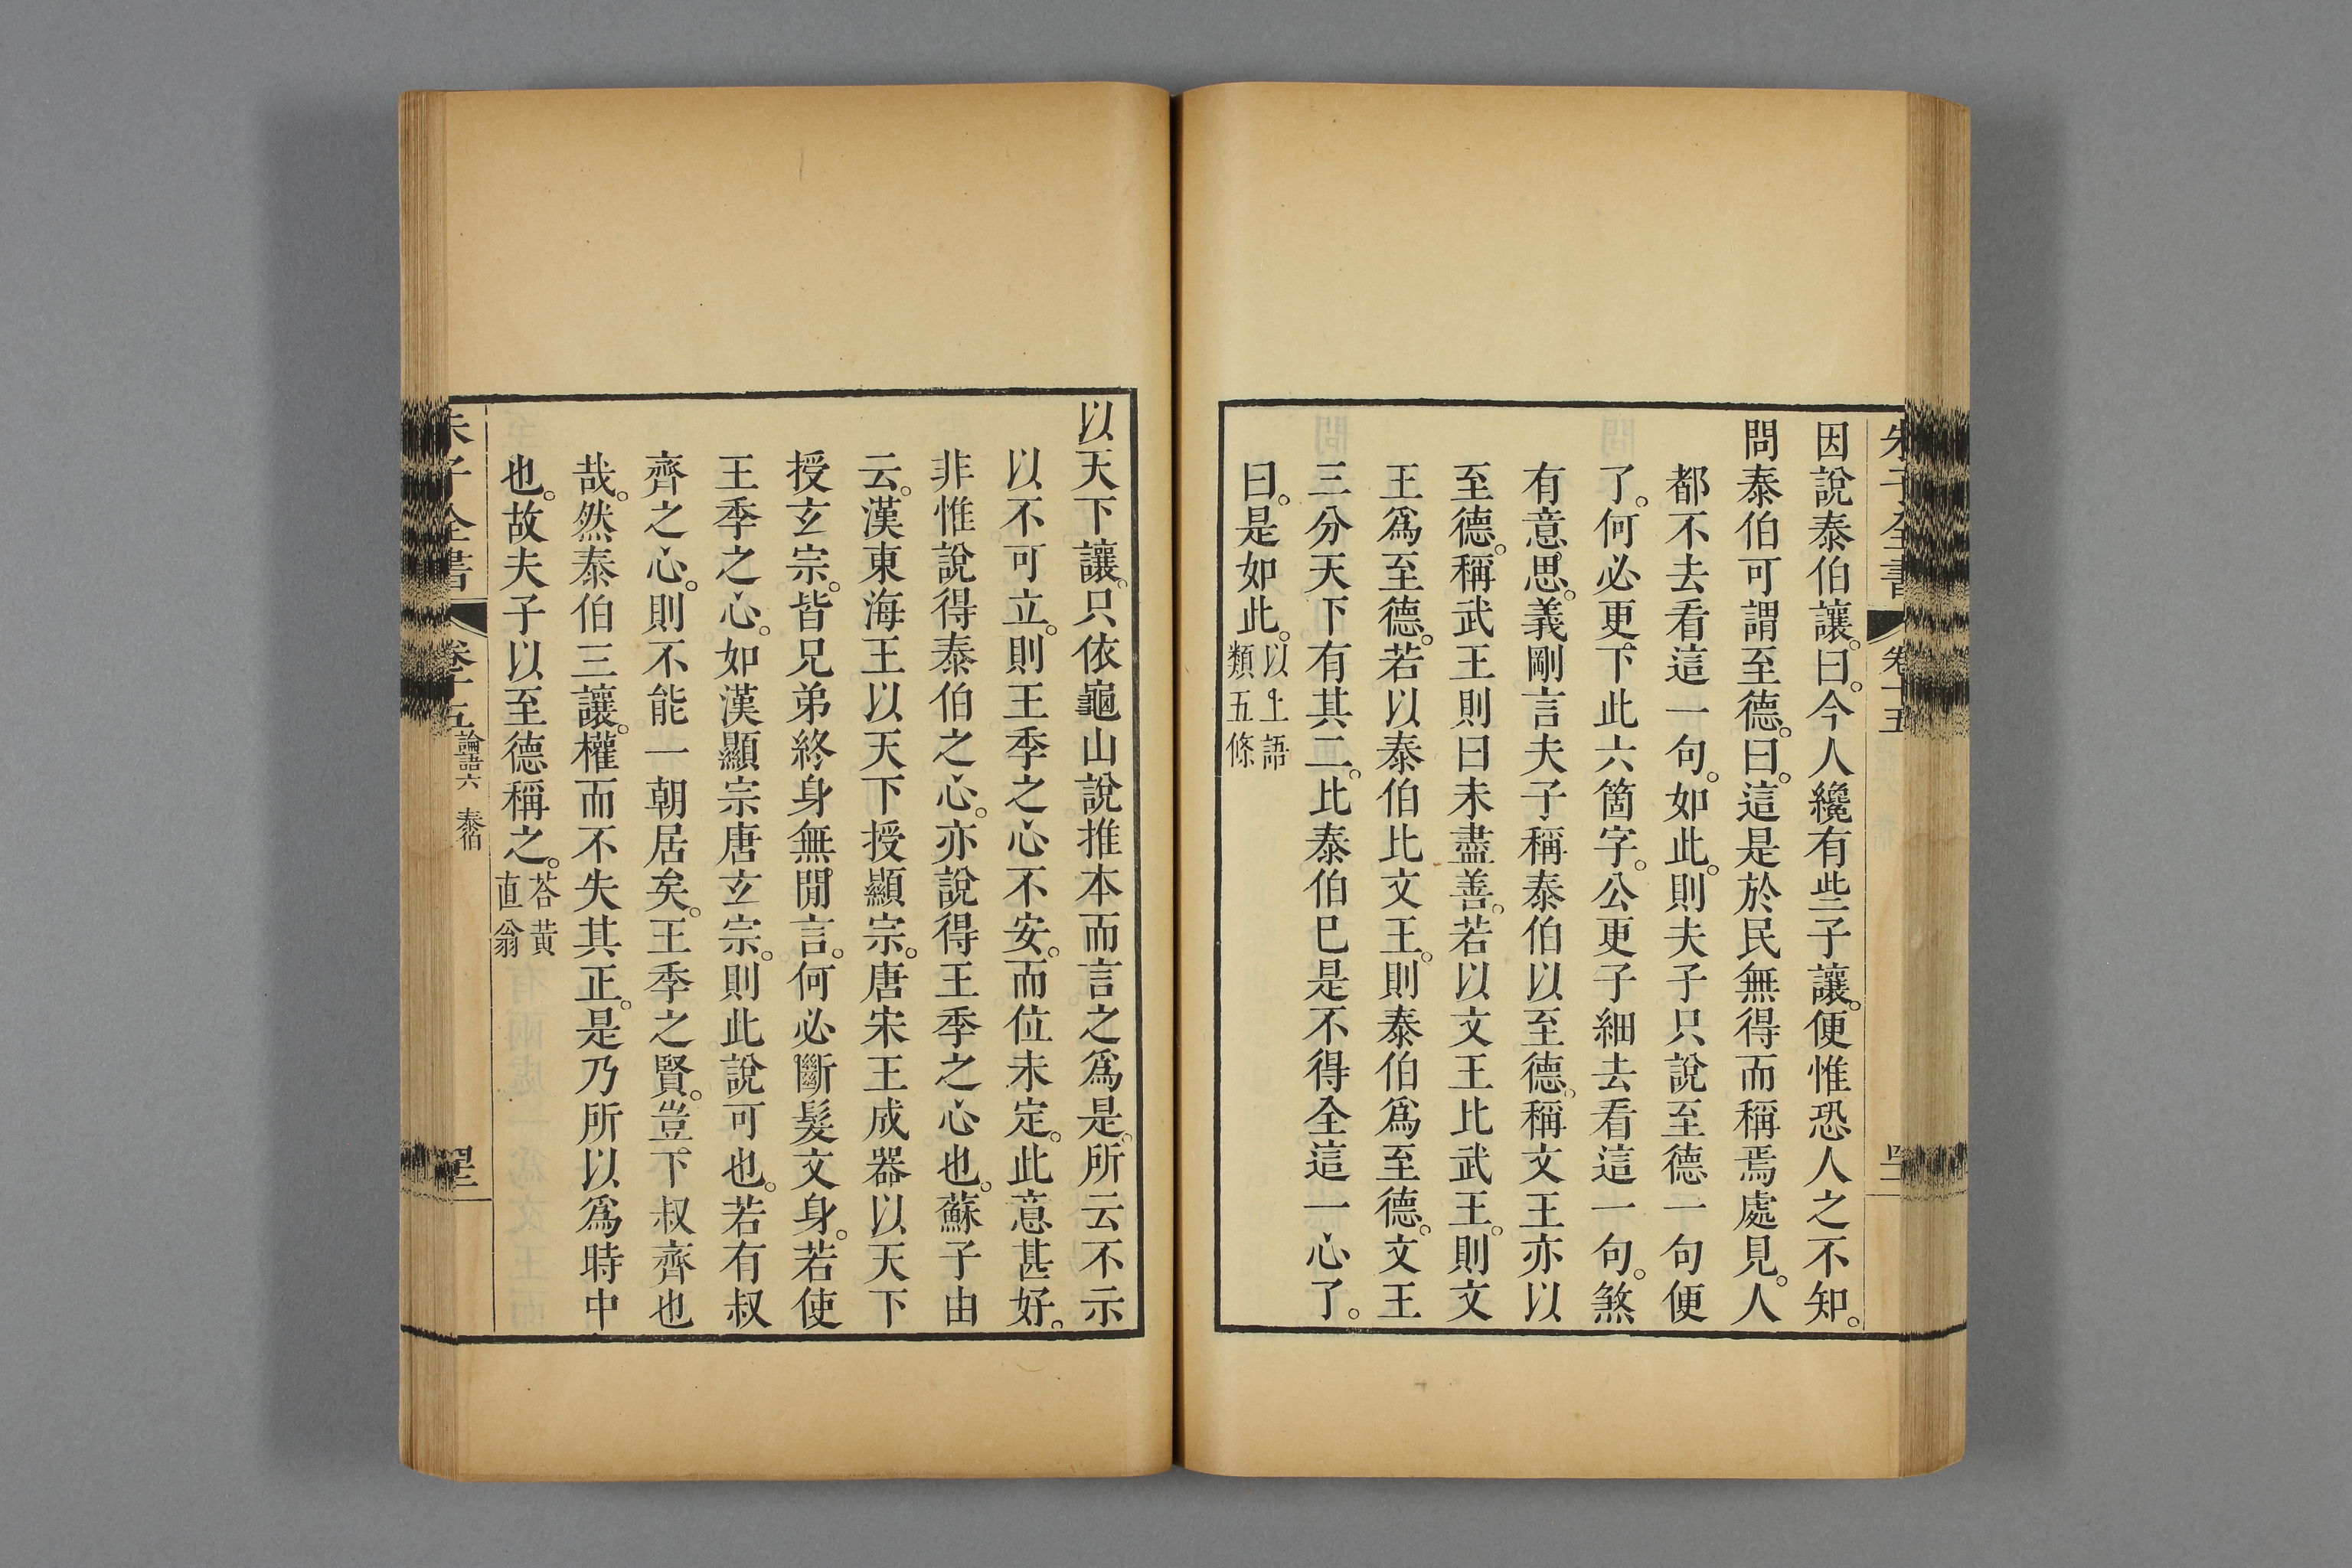 朱子全書 卷十五
因說泰伯讓。曰。今人纔有些子讓。便惟恐人之不知。
問泰伯可謂至德。曰。這是於民無得而稱焉處見。人
都不去看這一句。如此。則夫子只說至德一句便
了。何必更下此六箇字。公更子細去看這一句。煞
有意思。義剛言夫子稱泰伯以至德。稱文王亦以
至德。稱武王則曰未盡善。若以文王比武王。則文
王爲至德。若以泰伯比文王。則泰伯爲至德。文王
三分天下有其二。比泰伯巳是不得全這一心了。
曰。是如此。以上語
類五條
以天下讓。只依龜山說推本而言之爲是。所云不示
以不可立。則王季之心不安。而位未定。此意甚好。
非惟說得泰伯之心。亦說得王季之心也。蘇子由
云。漢東海王以天下授顯宗。唐宋王成器以天下
授玄宗。皆兄弟終身無閒言。何必斷髮文身。若使
王季之心。如漢顯宗唐玄宗。則此說可也。若有叔
齊之心。則不能一朝居矣。王季之賢。豈下叔齊也
哉。然泰伯三讓。權而不失其正。是乃所以爲時中
也。故夫子以至德稱之。荅黃
直翁
朱子全書 卷十五 論語六 泰伯